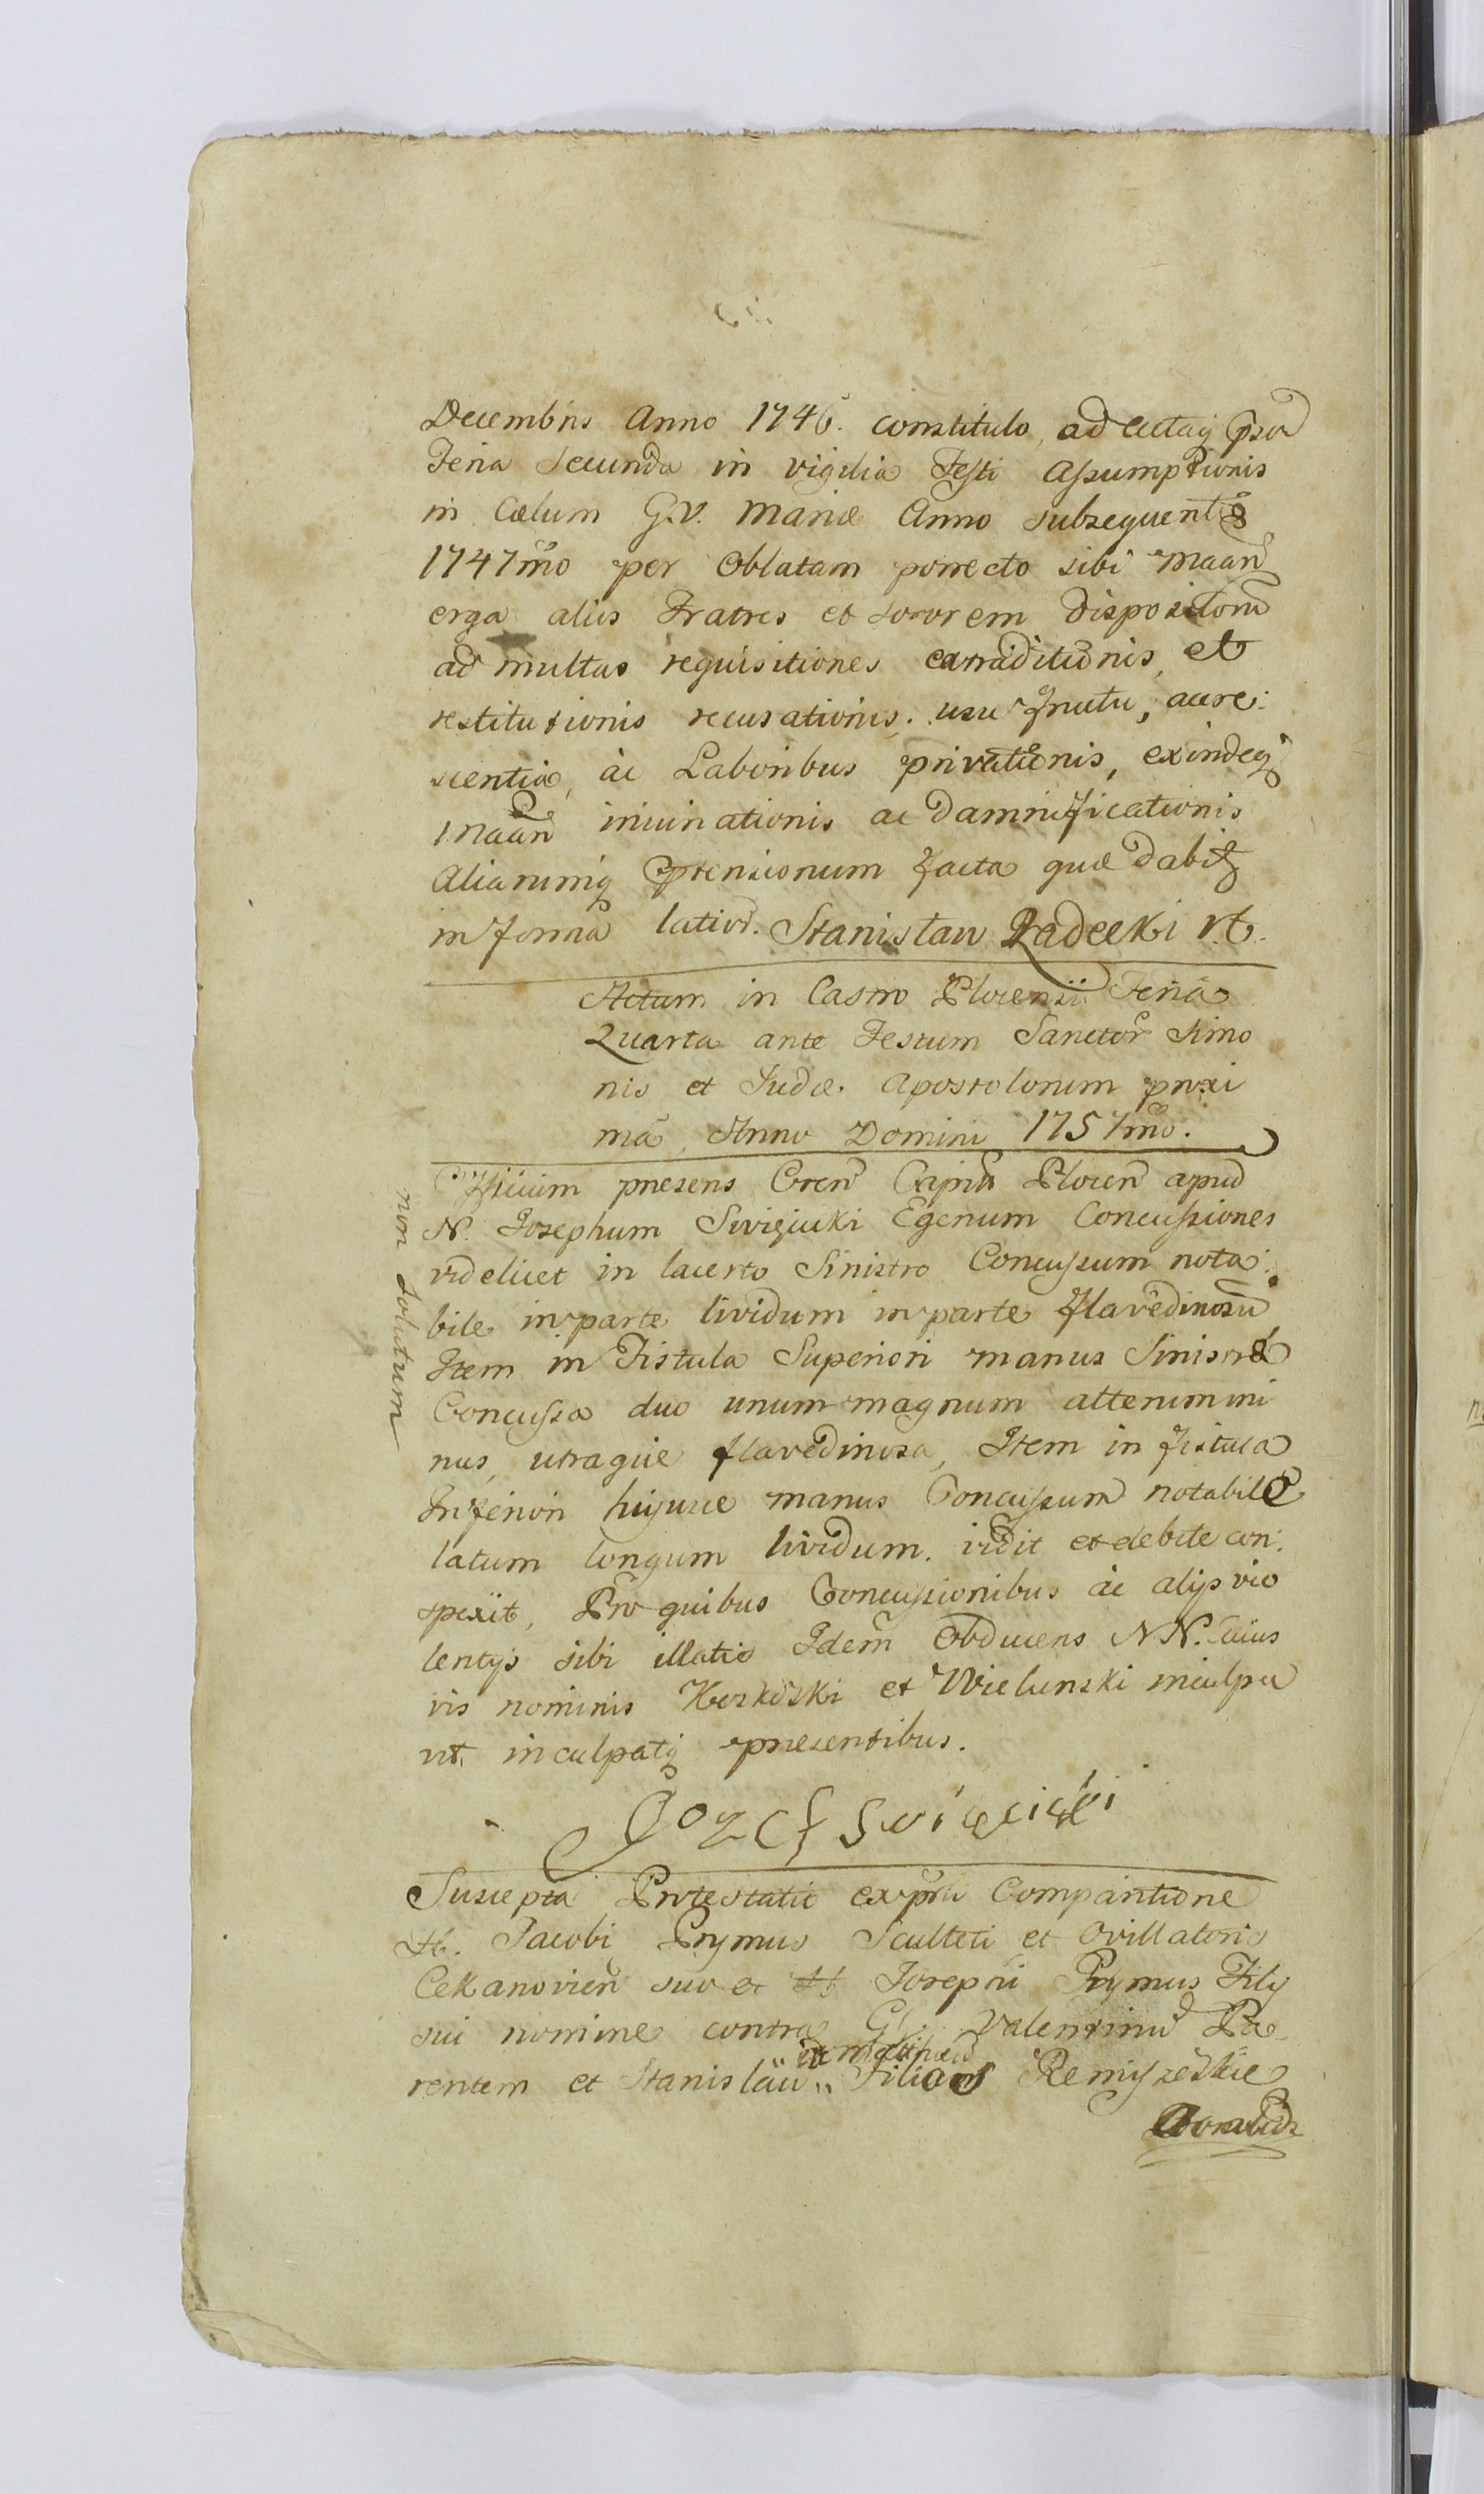 Decembris Anno 1746. constituto, ad Actaq
Feria Secunda in vigilia Festi Assumptionis
in Cælum G.V. Mariæ Anno subsequentis
1747mo per Oblatam porrecto sibi
erga alios Fratres et sororem dispositorum
ad multas requisitiones extraditionis, et
restitutionis recusationis. usu fructu, accre:
scentia, ac Laboribus privationis, exindeq
iniurinationis ac Damnificationis
Aliarumq Prtensionum facta quæ dabitz
in forma latiori. Stanisław Radecki
Actum in Castro Plocensi Feria
Quarta ante Festum Sanctor Simo
nis et Judæ. Apostolorum proxi
ma, Anno Domini 1757mo.
non solutum
Officium præsens Castren Capitn Plocen apud
N. Josephum Swięcicki Egenum Concussiones
videlicet in lacerto Sinistro Concussum nota:
bile in parte lividum in parte flavedinosu
Item in Fistula Superiori manus Sinistræ
Concussa duo unum magnum alterum mi
nus, utraque flavedinosa, Item in fistula
Inferiori hujusce manus Concussum notabile
latum longum lividum. vidit et debite con:
spexit, Pro quibus Concussionibus ac alijs vio
lentijs sibi illatis Idem Obducens NN. cuius
vis nominis Koskoski et Wielunski inculpa
vit inculpatq præsentibus.
Jozef swięcicki
Suscepta Protestatio ex prli Comparitione
H. Jacobi Prymus Sculteti et Ovillatoris
Cekanovien suo et H Josephi Prymus Filij
sui nomine contra G. Valentinu Pa
rentem et Stanislau" Filium Remiszeskie